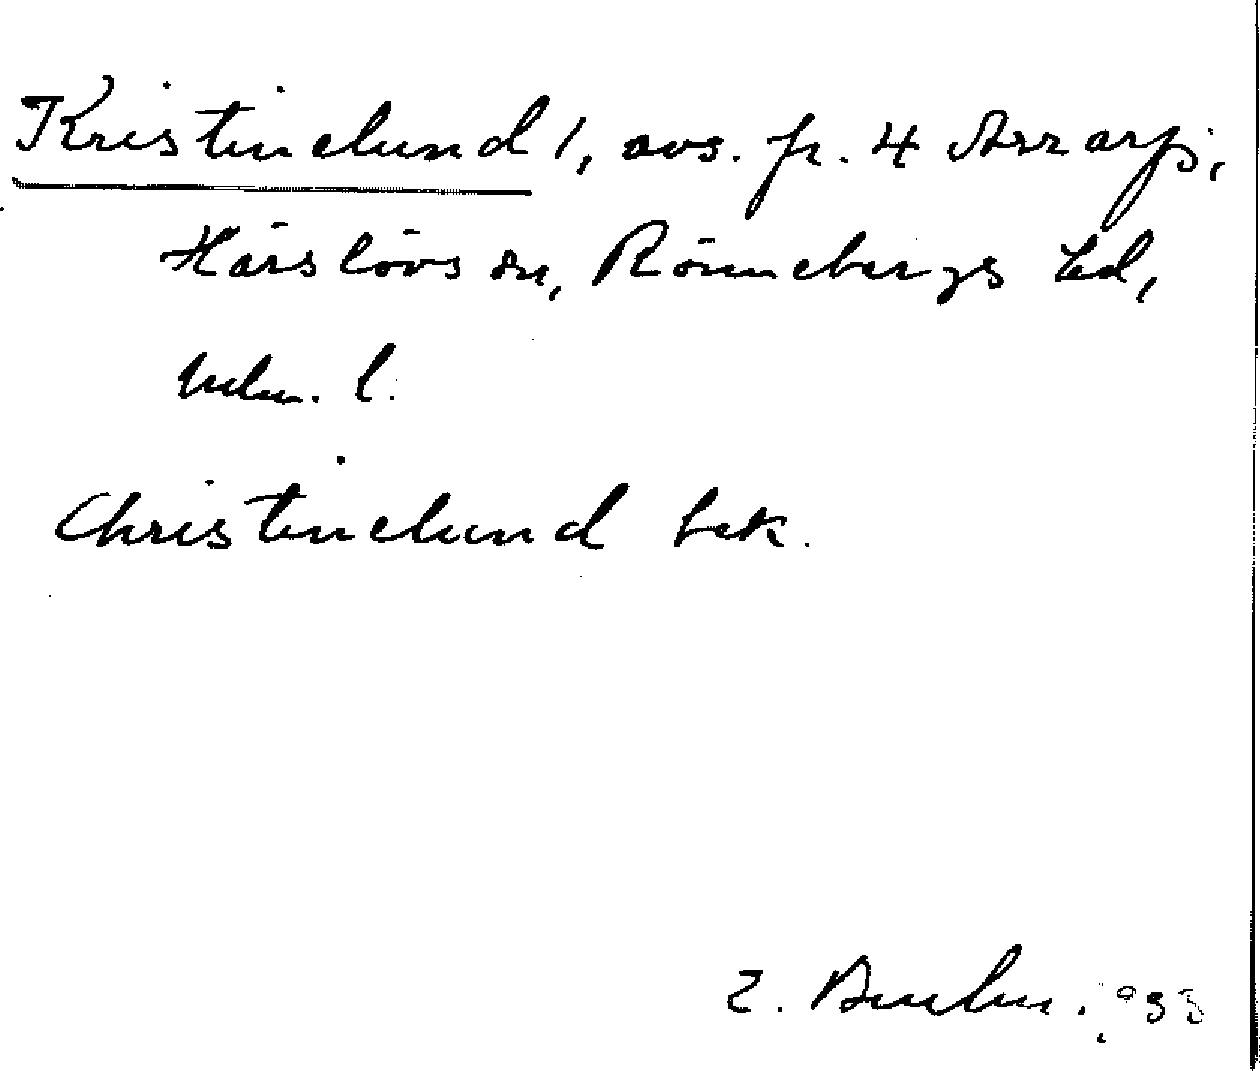 Kristinelund 1, avs. fr. 4 Arrarp,
Härslövs sn, Rönnebergs hd,
Mlm. l.
Christinelund bek.